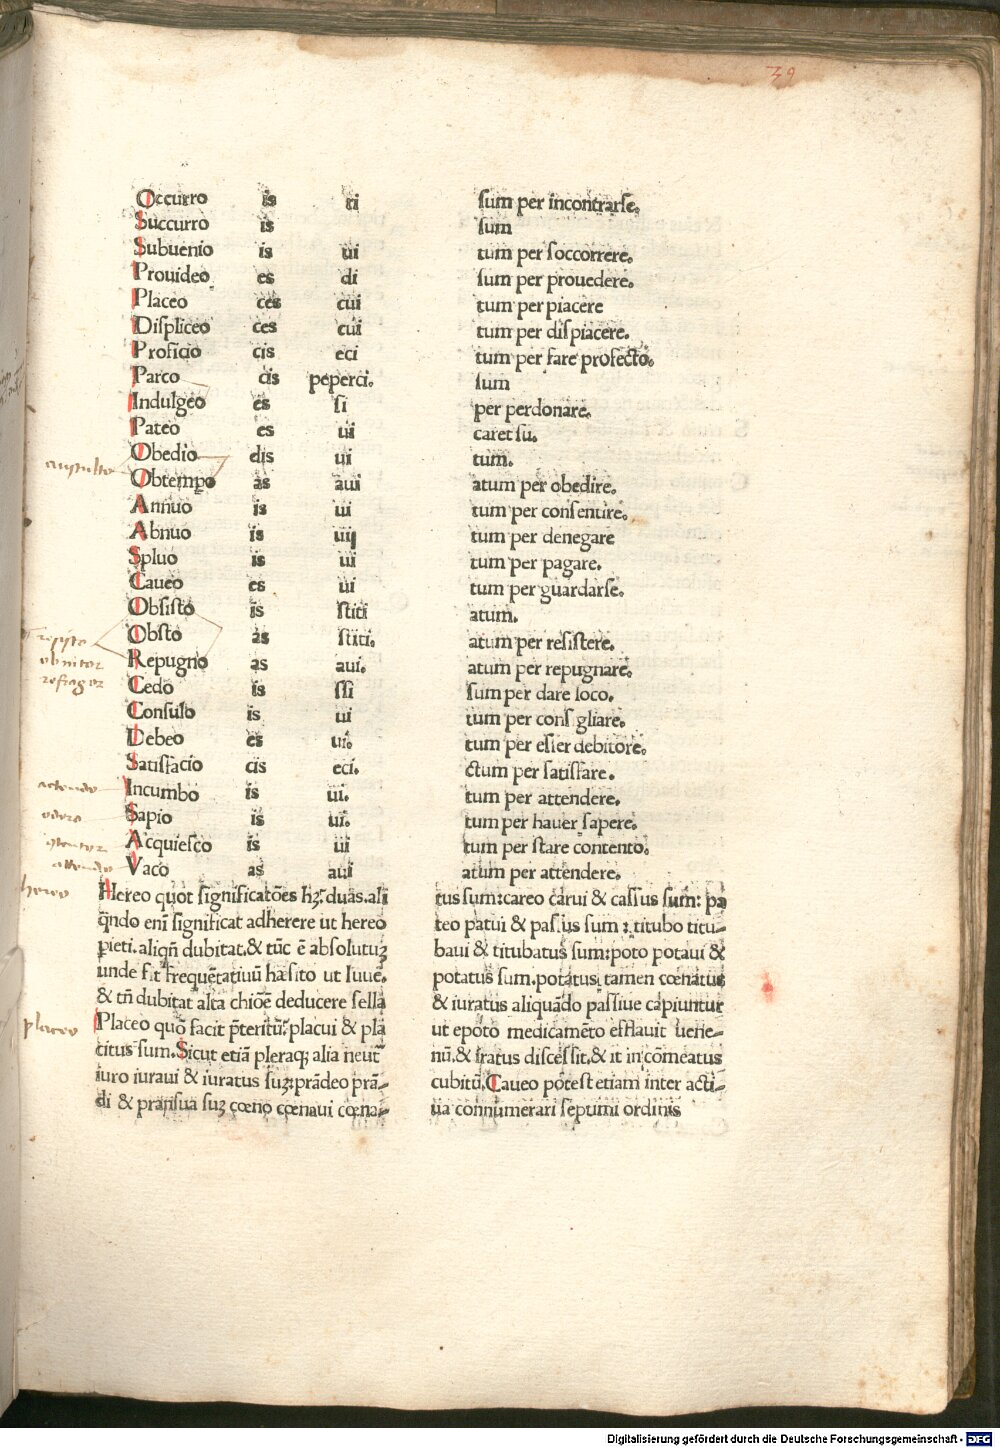 39
Occurro is ri sum per incontrarse.
Succurro is sum
Subuenio is ui tum per soccorrere.
Prouideo es di sum per prouedere.
Placeo ces cui tum per piacere
Displiceo ces cui tum per dispiacere.
Proficio cis eci tum per fare profecto.
Parco cis peperci. sum
Indulgeo es si per perdonare.
Pateo es ui caret sū.
Obedio dis ui tum.
Obtempo as aui atum per obedire.
Annuo is ui tum per consentire.
Abnuo is ui tum per denegare
Spluo is ui tum per pagare.
Caueo es ui tum per guardarse.
Obsisto is stiti atum.
Obsto as stiti. atum per resistere.
Repugno as aui. atum per repugnare.
Cedo is ssi sum per dare loco.
Consulo is ui tum per consigliare.
Debeo es ui. tum per esser debitore.
Satisfacio cis eci. ctum per satisfare.
Incumbo is ui. tum per attendere.
Sapio is ui. tum per hauer sapere.
Acquiesco is ui tum per stare contento.
Vaco as aui atum per attendere.
hereo
placeo
Hereo quot significatōes hꝫ? duas. ali
qn̄do eni significat adherere ut hereo
pieti. aliqn̄ dubitat. & tūc ē absolutuꝫ
unde fit frequētatiuū hasito ut Iuue.
& tn̄ dubitat alta chioē deducere sella
Placeo quō facit p̄teritū? placui & pla
citus sum. Sicut etiā pleraqꝫ alia neut
iuro iuraui & iuratus suꝫ: prādeo prā-
di & pransua suꝫ cœno cœnaui cœna-
tus sum: careo carui & cassus sum: pa
teo patui & passus sum: titubo titu-
baui & titubatus sum: poto potaui &
potatus sum. potatus tamen cœnatus
& iuratus aliquādo passiue capiuntur
ut epoto medicamēto efflauit uene-
nū. & fratus discessit. & it in cōmeatus
cubitū. Caueo potest etiam inter acti-
ua connumerari septimi ordinis
Digitalisierung gefördert durch die Deutsche Forschungsgemeinschaft - DFG